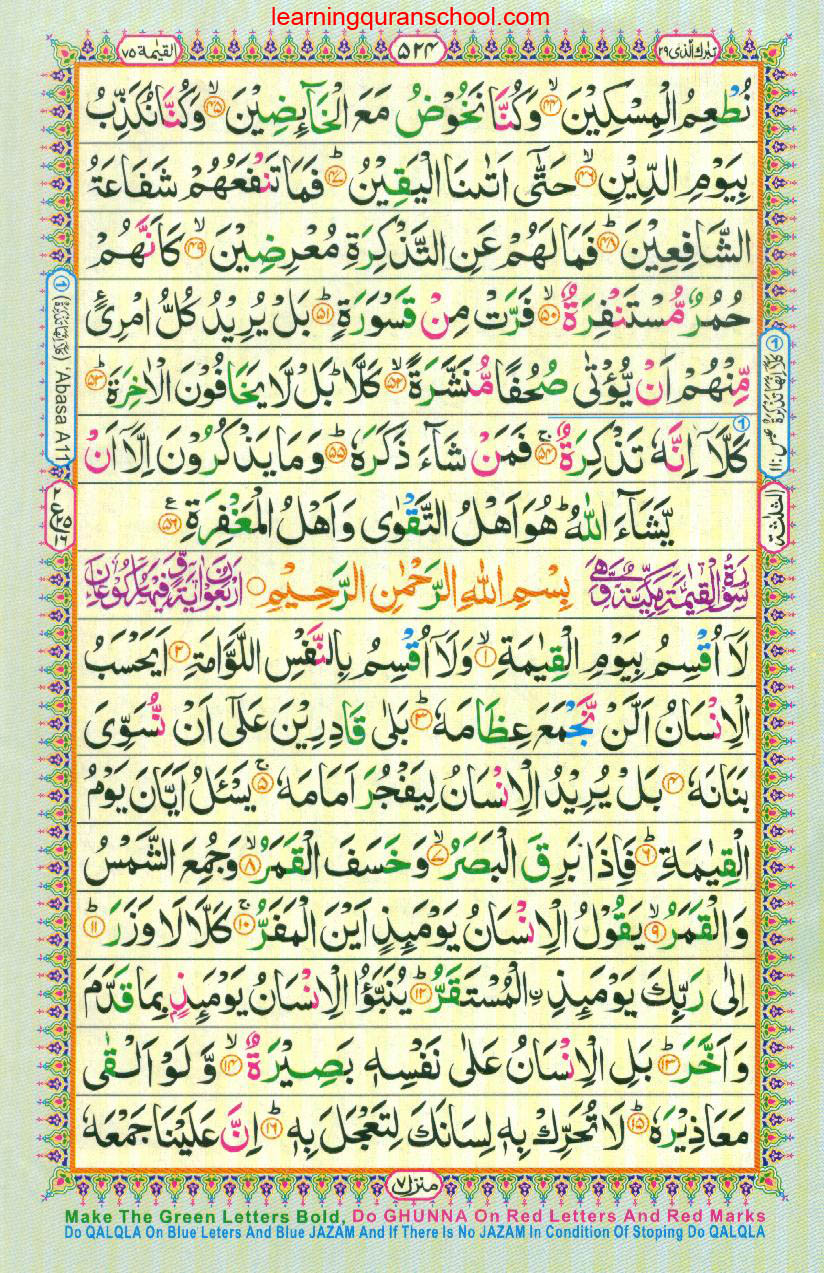 learningquranschool.com
تبٰرك الّذی ٢٩
٥٢٤
القيٰمة ٧٥
نُطْعِمُ الْمِسْكِيْنَ ۙ﴿٤٤﴾ وَكُنَّا نَخُوْضُ مَعَ الْخَآئِضِيْنَ ۙ﴿٤٥﴾ وَكُنَّا نُكَذِّبُ
بِيَوْمِ الدِّيْنِ ۙ﴿٤٦﴾ حَتّٰٓى اَتٰىنَا الْيَقِيْنُ ؕ﴿٤٧﴾ فَمَا تَنْفَعُهُمْ شَفَاعَةُ
الشَّافِعِيْنَ ؕ﴿٤٨﴾ فَمَا لَهُمْ عَنِ التَّذْكِرَةِ مُعْرِضِيْنَ ۙ﴿٤٩﴾ كَاَنَّهُمْ
حُمُرٌ مُّسْتَنْفِرَةٌ ۙ﴿٥٠﴾ فَرَّتْ مِنْ قَسْوَرَةٍ ؕ﴿٥١﴾ بَلْ يُرِيْدُ كُلُّ امْرِئٍ
مِّنْهُمْ اَنْ يُّؤْتٰى صُحُفًا مُّنَشَّرَةً ۙ﴿٥٢﴾ كَلَّا ؕ بَلْ لَّا يَخَافُوْنَ الْاٰخِرَةَ ؕ﴿٥٣﴾
كَلَّاۤ اِنَّهٗ تَذْكِرَةٌ ۚ﴿٥٤﴾ فَمَنْ شَآءَ ذَكَرَهٗ ؕ﴿٥٥﴾ وَمَا يَذْكُرُوْنَ اِلَّاۤ اَنْ
يَّشَآءَ اللّٰهُ ؕ هُوَ اَهْلُ التَّقْوٰى وَاَهْلُ الْمَغْفِرَةِ ﴿٥٦﴾ ع
سُوْرَةُ الْقِيٰمَةِ مَكِّيَّةٌ وَّهِيَ بِسْمِ اللّٰهِ الرَّحْمٰنِ الرَّحِيْمِ ○ اَرْبَعُوْنَ اٰيَةً وَّفِيْهَا رُكُوْعَانِ
لَاۤ اُقْسِمُ بِيَوْمِ الْقِيٰمَةِ ۙ﴿١﴾ وَلَاۤ اُقْسِمُ بِالنَّفْسِ اللَّوَّامَةِ ؕ﴿٢﴾ اَيَحْسَبُ
الْاِنْسَانُ اَلَّنْ نَّجْمَعَ عِظَامَهٗ ؕ﴿٣﴾ بَلٰى قَادِرِيْنَ عَلٰٓى اَنْ نُّسَوِّيَ
بَنَانَهٗ ﴿٤﴾ بَلْ يُرِيْدُ الْاِنْسَانُ لِيَفْجُرَ اَمَامَهٗ ۚ﴿٥﴾ يَسْـَٔلُ اَيَّانَ يَوْمُ
الْقِيٰمَةِ ؕ﴿٦﴾ فَاِذَا بَرِقَ الْبَصَرُ ۙ﴿٧﴾ وَخَسَفَ الْقَمَرُ ۙ﴿٨﴾ وَجُمِعَ الشَّمْسُ
وَالْقَمَرُ ۙ﴿٩﴾ يَقُوْلُ الْاِنْسَانُ يَوْمَئِذٍ اَيْنَ الْمَفَرُّ ۚ﴿١٠﴾ كَلَّا لَا وَزَرَ ؕ﴿١١﴾
اِلٰى رَبِّكَ يَوْمَئِذِ ِ۟الْمُسْتَقَرُّ ؕ﴿١٢﴾ يُنَبَّؤُا الْاِنْسَانُ يَوْمَئِذٍۭ بِمَا قَدَّمَ
وَاَخَّرَ ؕ﴿١٣﴾ بَلِ الْاِنْسَانُ عَلٰى نَفْسِهٖ بَصِيْرَةٌ ۙ﴿١٤﴾ وَّلَوْ اَلْقٰى
مَعَاذِيْرَهٗ ؕ﴿١٥﴾ لَا تُحَرِّكْ بِهٖ لِسَانَكَ لِتَعْجَلَ بِهٖ ؕ﴿١٦﴾ اِنَّ عَلَيْنَا جَمْعَهٗ
منزل ٧
١ كَلَّاۤ اِنَّهَا تَذْكِرَةٌ عبس: ١١
الثلثة
١ 'Abasa A 11
Make The Green Letters Bold, Do GHUNNA On Red Letters And Red Marks
Do QALQLA On Blue Leters And Blue JAZAM And If There Is No JAZAM In Condition Of Stoping Do QALQLA